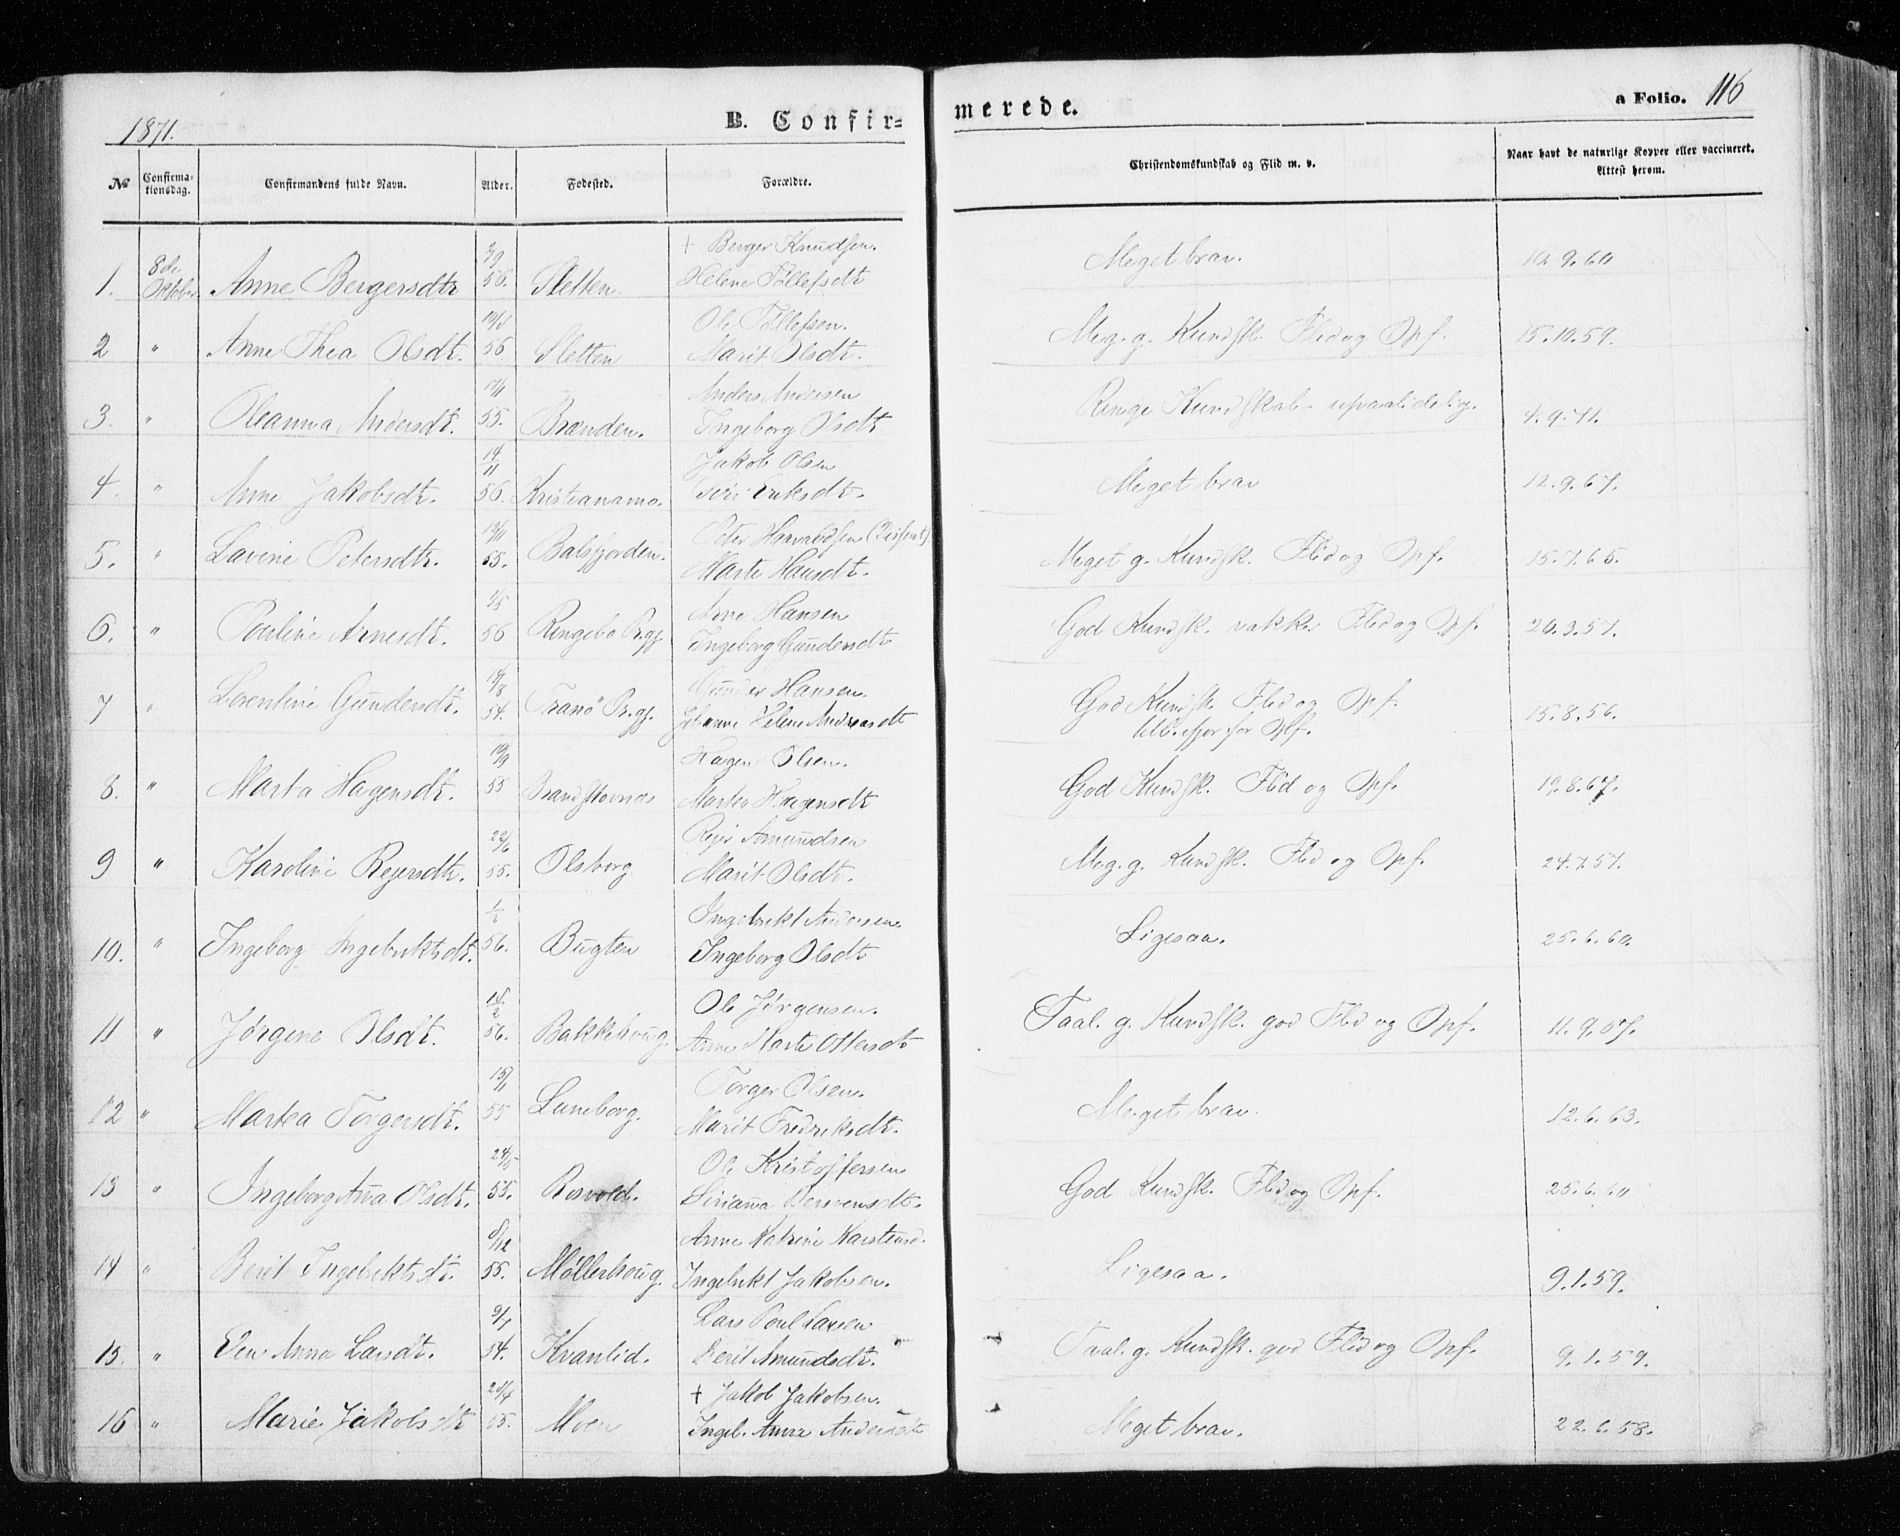 1871. B. Confir= merede. a Folio. 116
№ Confirma-tionsdag. Confirmandens fulde Navn. Alder. Fødested. Forældre. Christendomskundskab og Flid m. v. Naar havt de naturlige Kopper eller vaccineret. Attest herom.
† Berger Knudsen.
1. 8de Oktober Anne Bergersdtr 56. Sletten Helene Tollefsdtr Meget brav. 10.9.60
Ole Tollefsen.
2 " Anne Thea Olsdt. 56 Sletten Marit Olsdt. Meg. g. Kundsk. Flid og Opf. 15.10.59.
17/11 Anders Andersen
3. " Oleanna Andersdt. 55. Brænden. Ingeborg Olsdtr Ringe Kundskab - upaalidelig. 4.9.71.
14/11 Jakob Olsen
4. " Anne Jakobsdt. 56. Kristianamo. Eriksdt. Meget brav 12.9.67.
Peter Haavaldsen (Dissent)
5. " Lavine Petersdtr. 55. Balsfjorden. Marte Hansdt. Meget g. Kundsk. Flid og Opf. 15.7.65.
1/5 Arne Hansen
6. " Pouline Arnesdt. 56 Ringebo Pr.gj. Ingeborg Gundersdt God Kundsk. vakker Flid og Opf. 20.3.57.
18/8 Gunder Hansen.
7 " Lorentine Gundersdt. 54. Tranö Pr.gj. Johanne Helene Andreasdt God Kundsk. Flid og Opf. 15.8.56.
10/9 Hagen Olsen.
8. " Marta Hagensdt. 55 Brandskovnæs Marta Hagensdtr God Kundsk. Flid og Opf. 19.8.67.
22/6 Rejer Amundsen
9 " Karoline Rejersdt. 55. Olsborg Marit Olsdt. Meg. g. Kundsk. Flid og Opf. 24.7.57.
1/2 Ingebrikt Andersen
10. " Ingeborg Ingebriktsdt. 56. Bugten Ingeborg Olsdtr Ligesaa. 25.6.60.
18/2 Ole Jørgensen.
11 " Jørgine Olsdt. 56. Bakkehoug Anne Marte Ottersdt Taal. g. Kundsk. god Flid og Opf. 11.9.57.
15/11 Torger Olsen.
12 " Martea Torgersdt. 55 Luneborg. Marit Fredriksdt. Meget brav. 12.6.63.
24/5 Ole Kristoffersen
13 " Ingeborg Anna Olsdt. 55. Rosvold. Siriana Iversensdt. God Kundsk. Flid og Opf. 25.6.60
8/12 Anne Katrine Karstensd.
14 " Berit Ingebriktsdt. 55. Møllerhoug. Ingebrikt Jakobsen. Ligesaa. 9.1.59.
9/1 Lars Poul Larsen
15. " Elen Anna Larsdt. 54. Kvantid. Berit Amundsdt. Taal. g. Kundsk. god Flid og Opf. 9.1.59.
20/4 † Jakob Jakobsen.
16 " Marie Jakobsdt 55. Moen Ingeb. Anna Andersdt Meget brav. 22.6.58.